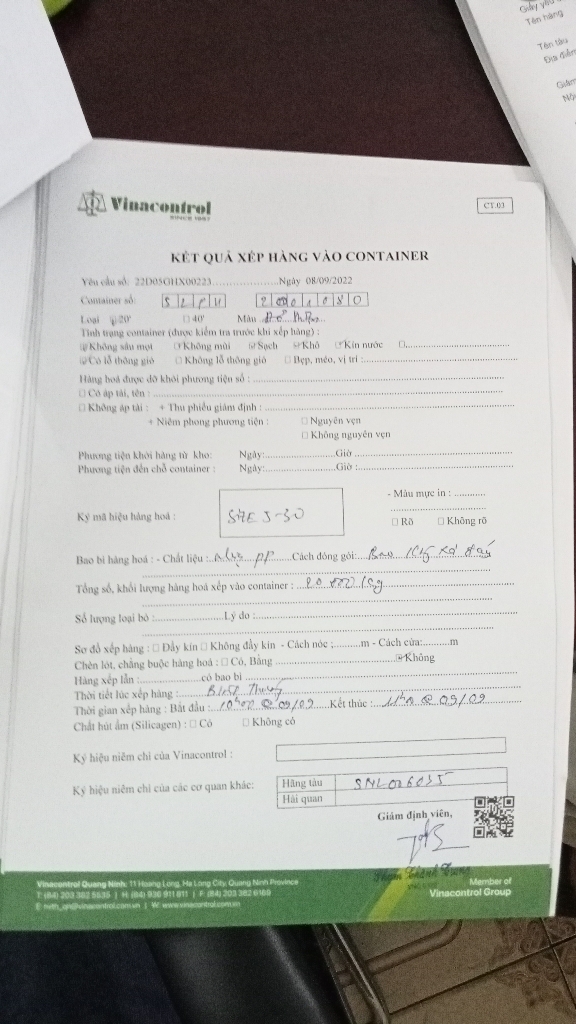 Giấy yêu
Tên hàng
Tên tàu
Địa điểm
Giám
Vinacontrol
SINCE 1957
CT.03
KẾT QUẢ XẾP HÀNG VÀO CONTAINER
Yêu cầu số: 22D05GHX00223.....................Ngày 08/09/2022
Container số:
Loại 20' □ 40' Màu
Tình trạng container (được kiểm tra trước khi xếp hàng) :
☑Không sâu mọt ☑Không mùi ☑Sạch ☑Khô ☑Kín nước □
☑Có lỗ thông gió □ Không lỗ thông gió □ Bẹp, méo, vị trí :
Hàng hoá được dỡ khỏi phương tiện số :
□ Có áp tải, tên :
□ Không áp tải : + Thu phiếu giám định :
+ Niêm phong phương tiện : □ Nguyên vẹn
□ Không nguyên vẹn
Phương tiện khỏi hàng từ kho: Ngày: Giờ
Phương tiện đến chỗ container : Ngày: Giờ :
Ký mã hiệu hàng hoá :
- Màu mực in :
□ Rõ □ Không rõ
Bao bì hàng hoá : - Chất liệu : PP Cách đóng gói: Bao
Tổng số, khối lượng hàng hoá xếp vào container : 20 000 kg
Số lượng loại bỏ : Lý do :
Sơ đồ xếp hàng : □ Đầy kín □ Không đầy kín - Cách nóc : m - Cách cửa: m
Chèn lót, chằng buộc hàng hoá : □ Có, Bằng ☑Không
Hàng xếp lẫn : có bao bì
Thời tiết lúc xếp hàng : Bình Thường
Thời gian xếp hàng : Bắt đầu : 10h00 @ 09/09 Kết thúc : @ 09/09
Chất hút ẩm (Silicagen) : □ Có □ Không có
Ký hiệu niêm chì của Vinacontrol :
Ký hiệu niêm chì của các cơ quan khác: Hãng tàu SNL026035
Hải quan
Giám định viên,
Vinacontrol Quang Ninh: 11 Hoang Long, Ha Long City, Quang Ninh Province
Member of
Vinacontrol Group